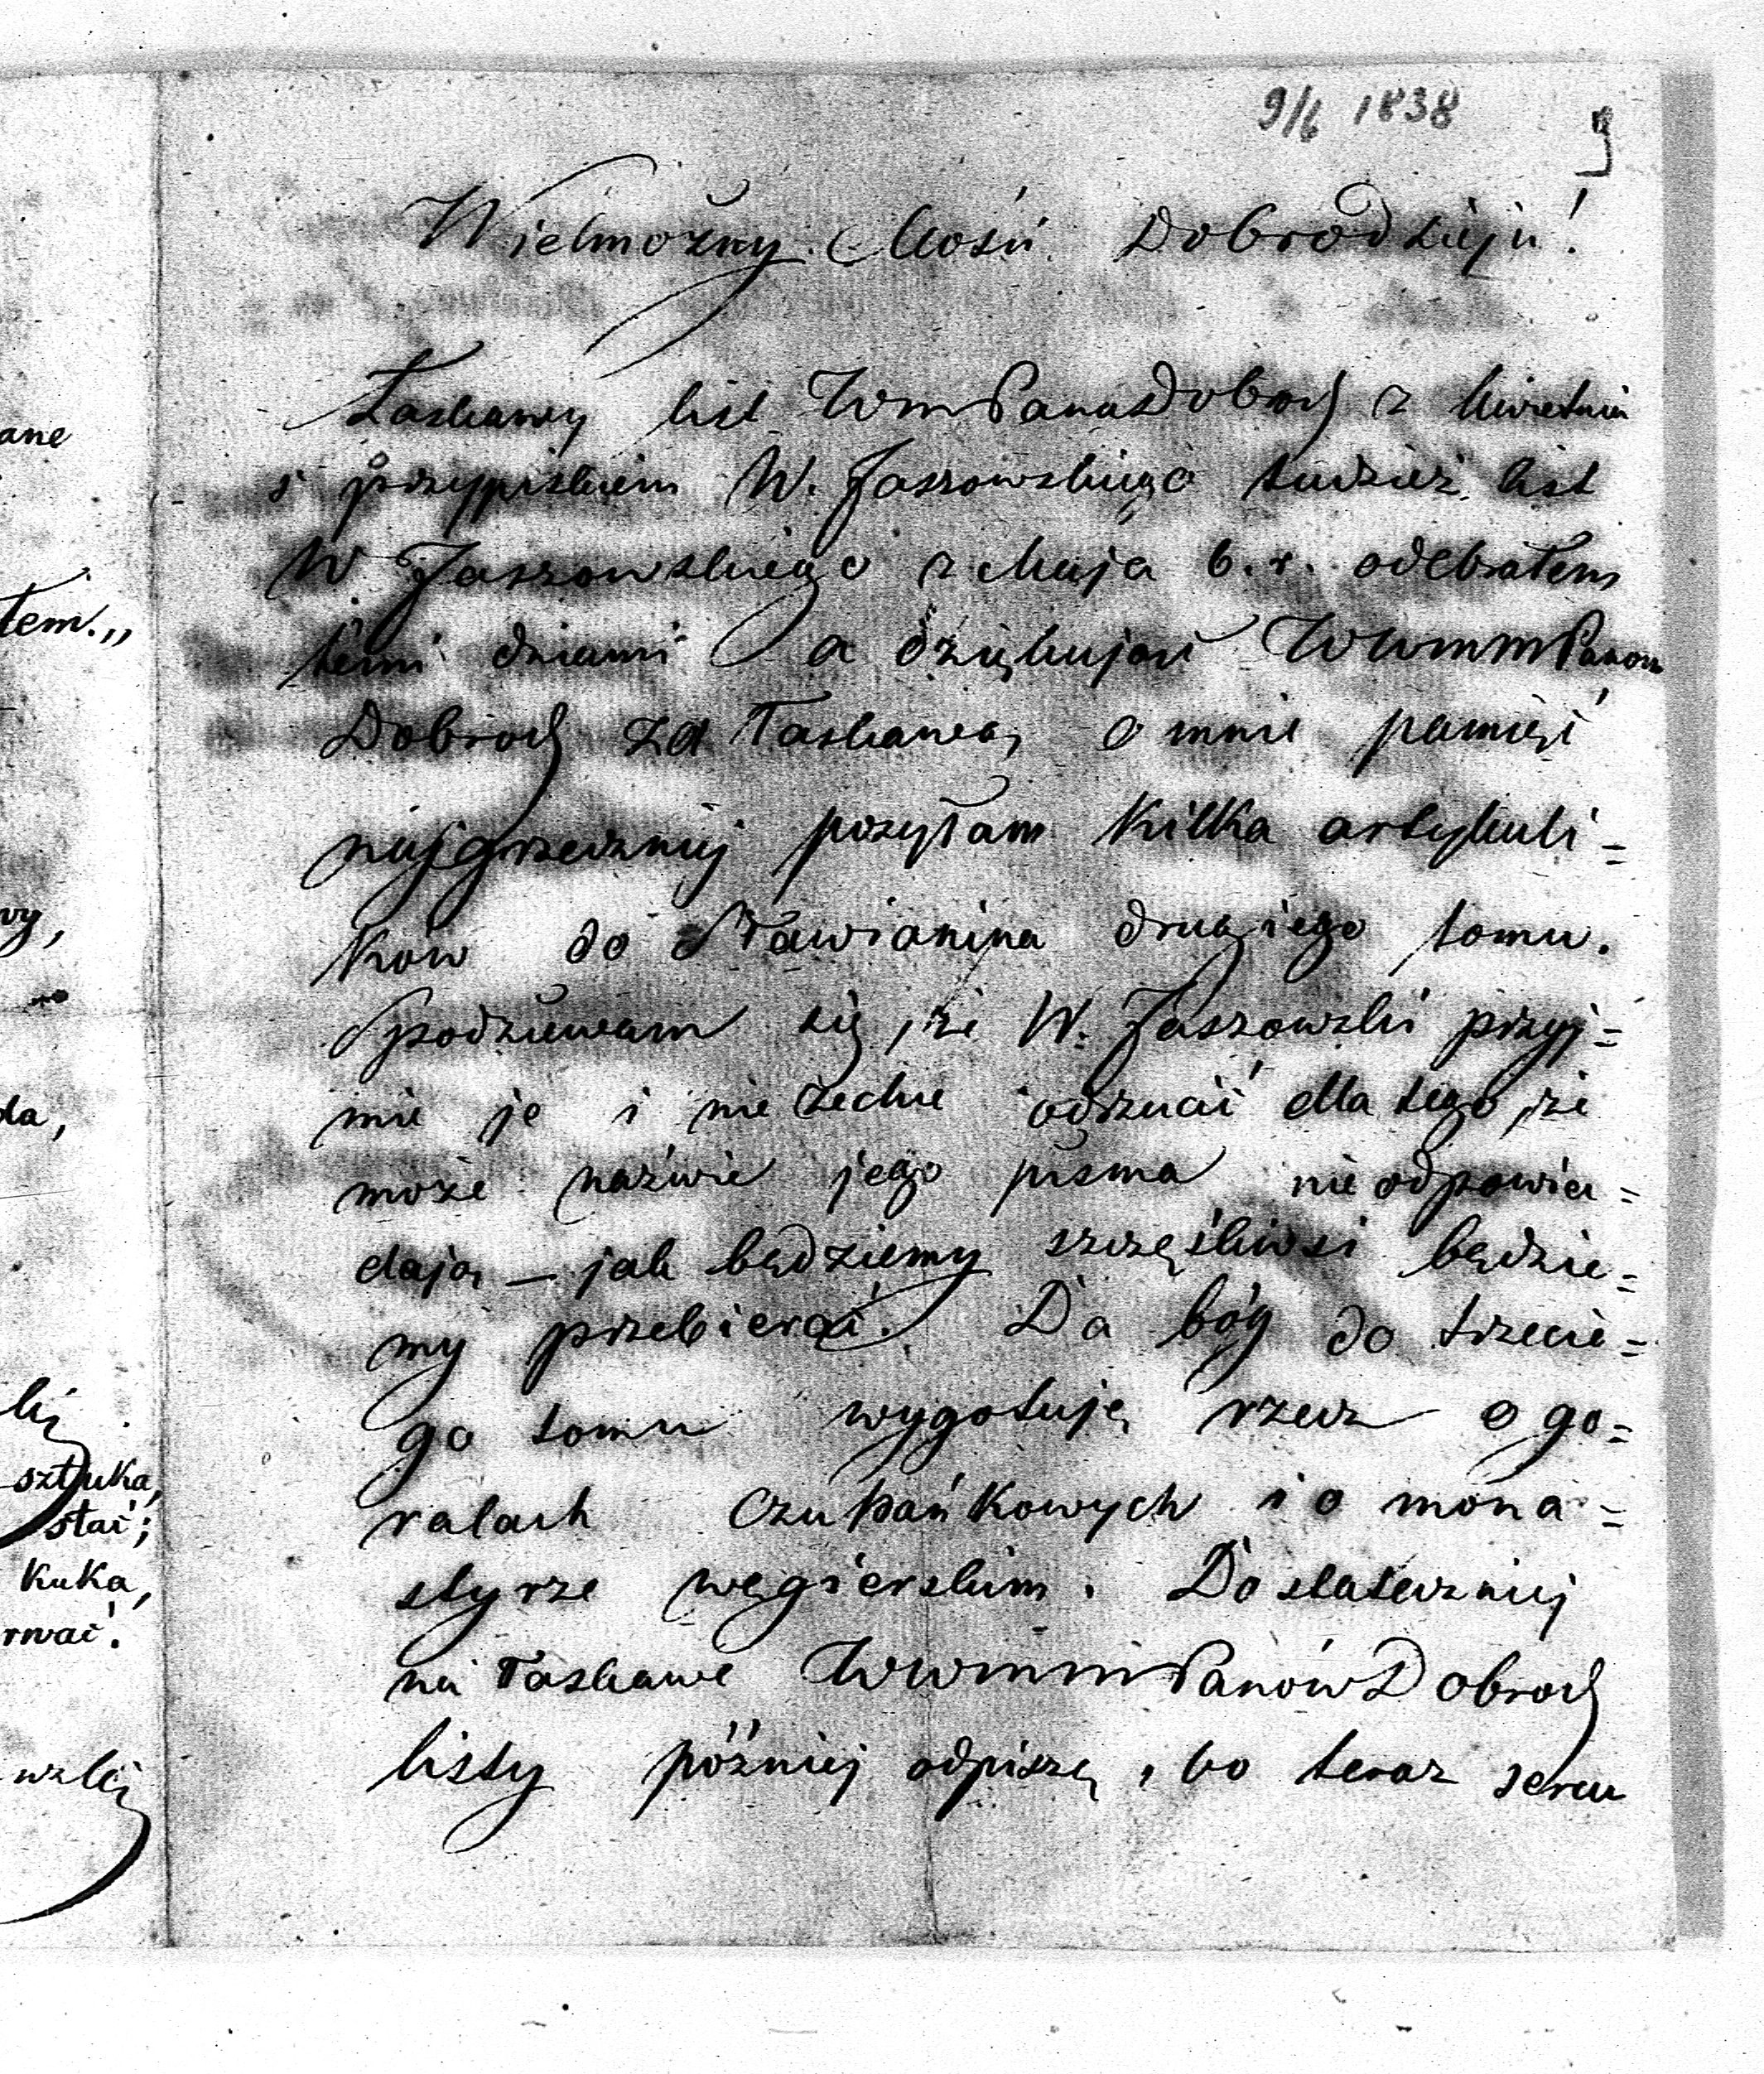 9/6 1838
9
Wielmożny Mości Dobrodzieju!
Łaskawy list WmPanaDobrod z kwietnia
s przypiskiem W. Jaszowskiego tudzież list
W Jaszowskiego z Maja b. r. odebrałem
temi dniami a dziękując WWmmPanom
Dobrod za łaskawą o mnie pamięć
najgrzeczniej posyłam kilka artykuli=
ków do Sławianina drugiego tomu.
Spodziewam się, że W. Jaszowski przyj=
mie je i nie zechce odrzucić dla tego, że
może naźwie jego pisma nie odpowia=
dają — jak będziemy szczęśliwsi będzie=
my przebierać. Da bóg do trzecie=
go tomu wygotuję rzecz o go=
ralach Czupańkowych i o mona=
styrze węgierskim. Dostateczniej
na łaskawe WWmmPanówDobrod
listy później odpiszę, bo teraz sercu
ane
łem.„
wy,
da,
sztuka,
stać;
kuka,
rwać.